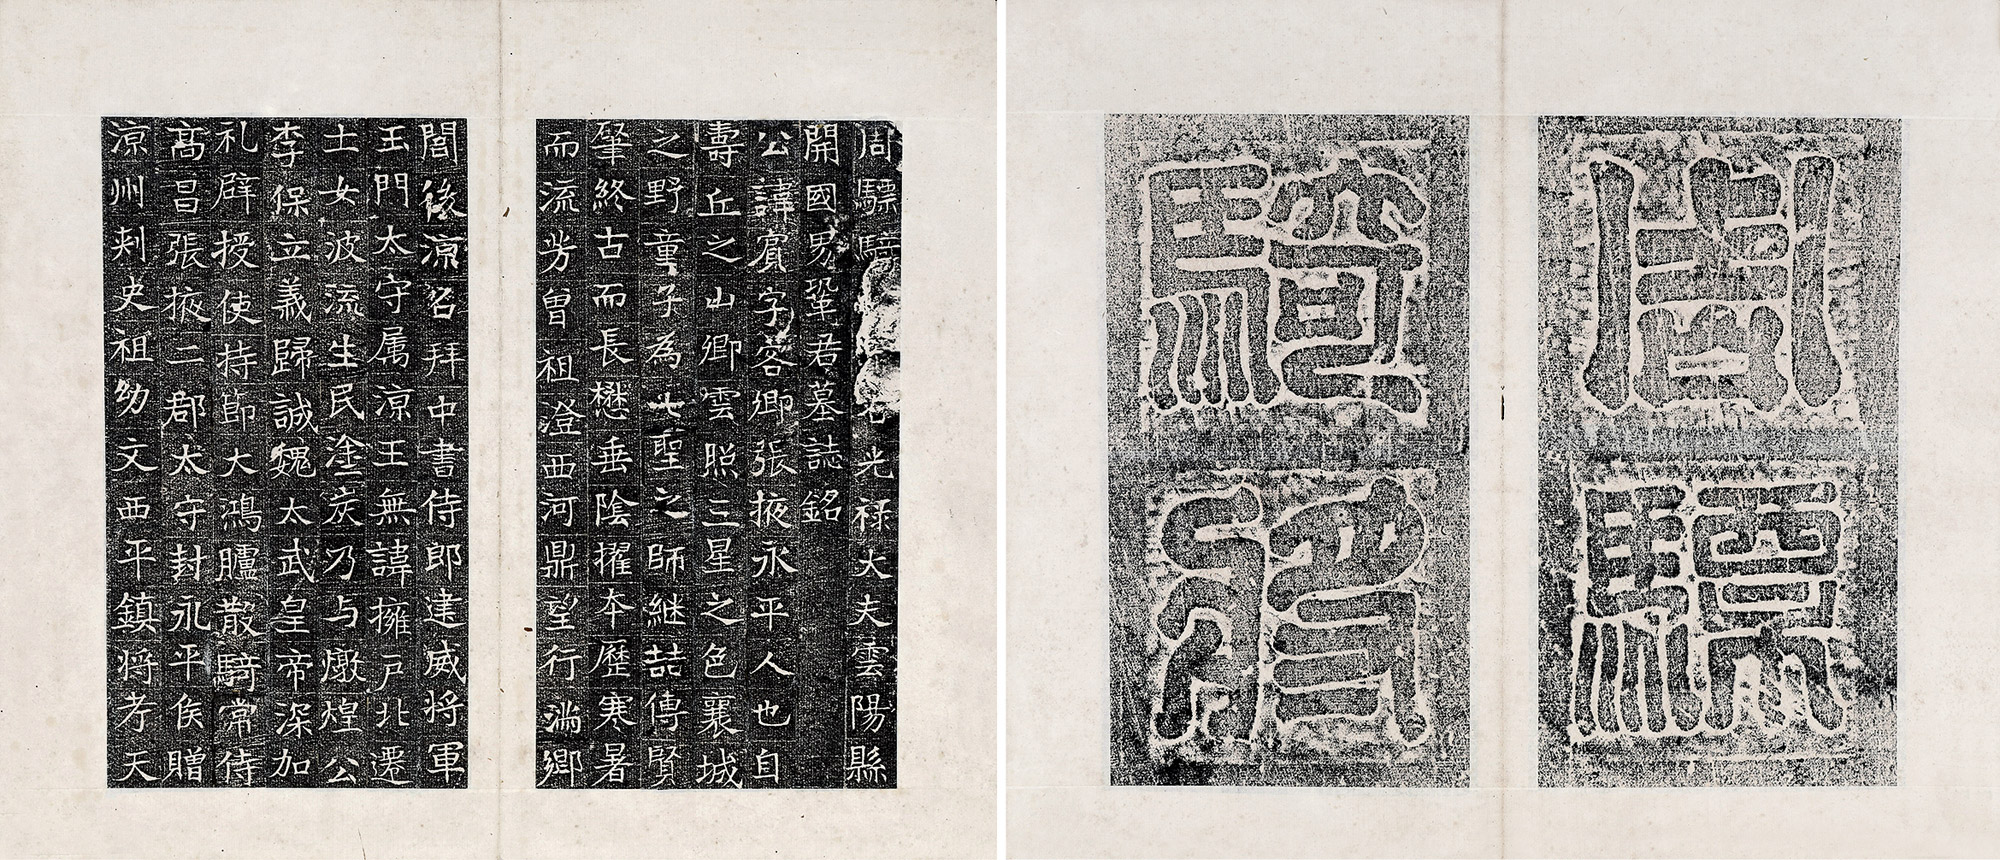 周驃
騎將
周驃騎右光祿大夫雲陽縣
開國男鞏君墓誌銘
公諱賓字客卿張掖永平人也自
壽丘之山卿雲照三星之色襄城
之野童子為七聖之師継喆傳賢
肇終古而長懋垂陰擢夲歷寒暑
而流芳曾祖澄西河鼎望行滿鄉
閭後涼召拜中書侍郎建威将軍
玉門太守属涼王無諱擁戶北遷
士女波流生民塗炭乃与燉煌公
李保立義歸誠魏太武皇帝深加
礼辟授使持節大鴻臚散騎常侍
髙昌張掖二郡太守封永平侯贈
涼州刺史祖幼文西平鎮将考天